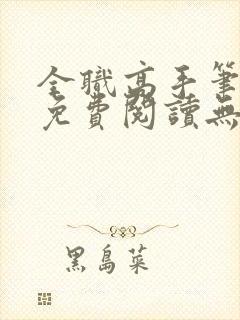 全職高手筆
免費閱讀無
黑島菜